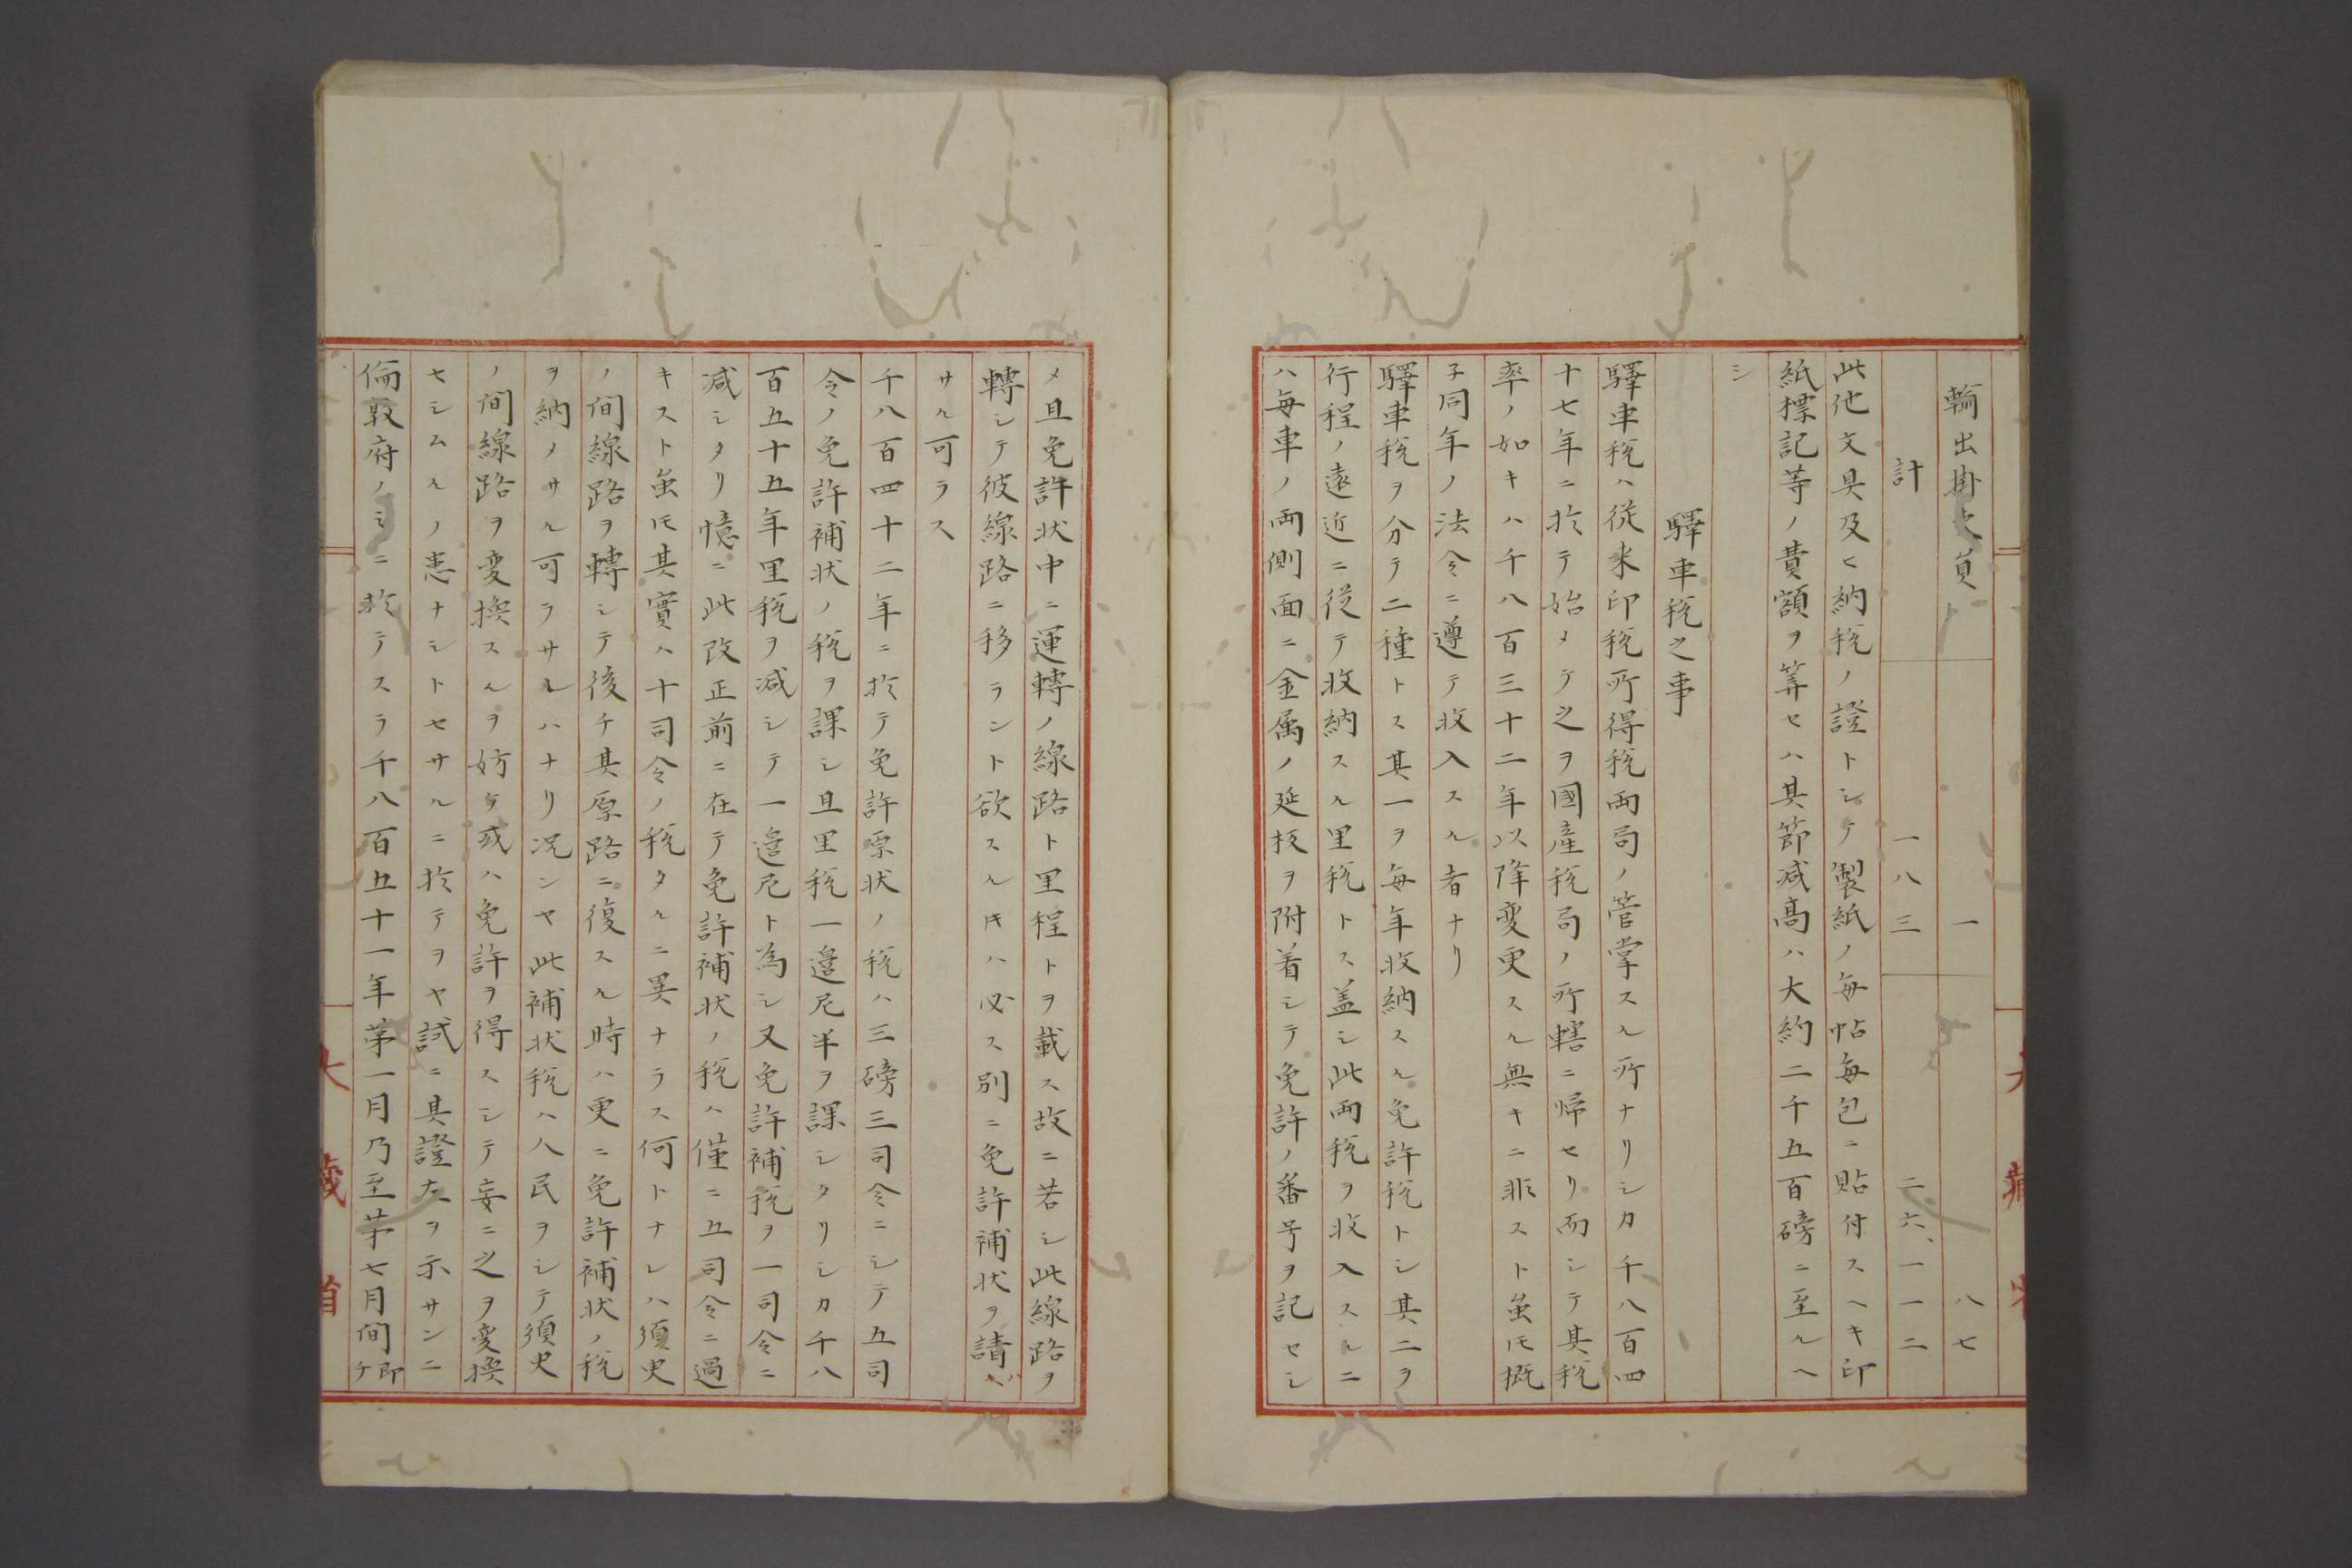 輸出掛之員 一 八七
計 一八三 二六、一一二
此他文具及ヒ納税ノ證トシテ製紙ノ毎帖毎包ニ貼付スヘキ印
紙標記等ノ費額ヲ筭セハ其節减高ハ大約二千五百磅ニ至ルヘ
シ
驛車税之事
驛車税ハ從来印税所得税両局ノ管掌スル所ナリシカ千八百四
十七年ニ於テ始メテ之ヲ國産税局ノ所轄ニ帰セリ而シテ其税
率ノ如キハ千八百三十二年以降変更スル無キニ非スト虽𪜈概
子同年ノ法令ニ遵テ收入スル者ナリ
驛車税ヲ分テ二種トス其一ヲ毎年收納スル免許税トシ其二ヲ
行程ノ遠近ニ従テ收納スル里税トス盖シ此両税ヲ收入スルニ
ハ毎車ノ両側面ニ金属ノ延板ヲ附着シテ免許ノ番号ヲ記セシ
メ且免許状中ニ運轉ノ線路ト里程トヲ載ス故ニ若シ此線路ヲ
轉シテ彼線路ニ移ラント欲スル𪜈ハ必ス別ニ免許補状ヲ請ハ
サル可ラス
千八百四十二年ニ於テ免許票状ノ税ハ三磅三司令ニシテ五司
令ノ免許補状ノ税ヲ課シ且里税一邉尼半ヲ課シタリシカ千八
百五十五年里税ヲ减シテ一邉尼ト為シ又免許補税ヲ一司令ニ
减シタリ憶ニ此改正前ニ在テ免許補状ノ税ハ僅ニ五司令ニ過
キスト虽𪜈其實ハ十司令ノ税タルニ異ナラス何トナレハ須臾
ノ間線路ヲ轉シテ後チ其原路ニ復スル時ハ更ニ免許補状ノ税
ヲ納ノサル可ラサルハナリ况ンヤ此補状税ハ人民ヲシテ須臾
ノ間線路ヲ変換スルヲ妨ケ或ハ免許ヲ得スシテ妄ニ之ヲ変換
セシムルノ患ナシトセサルニ於テヲヤ試ニ其證左ヲ示サンニ
倫敦府ノミニ於テスラ千八百五十一年第一月乃至第七月間即チ
大藏省